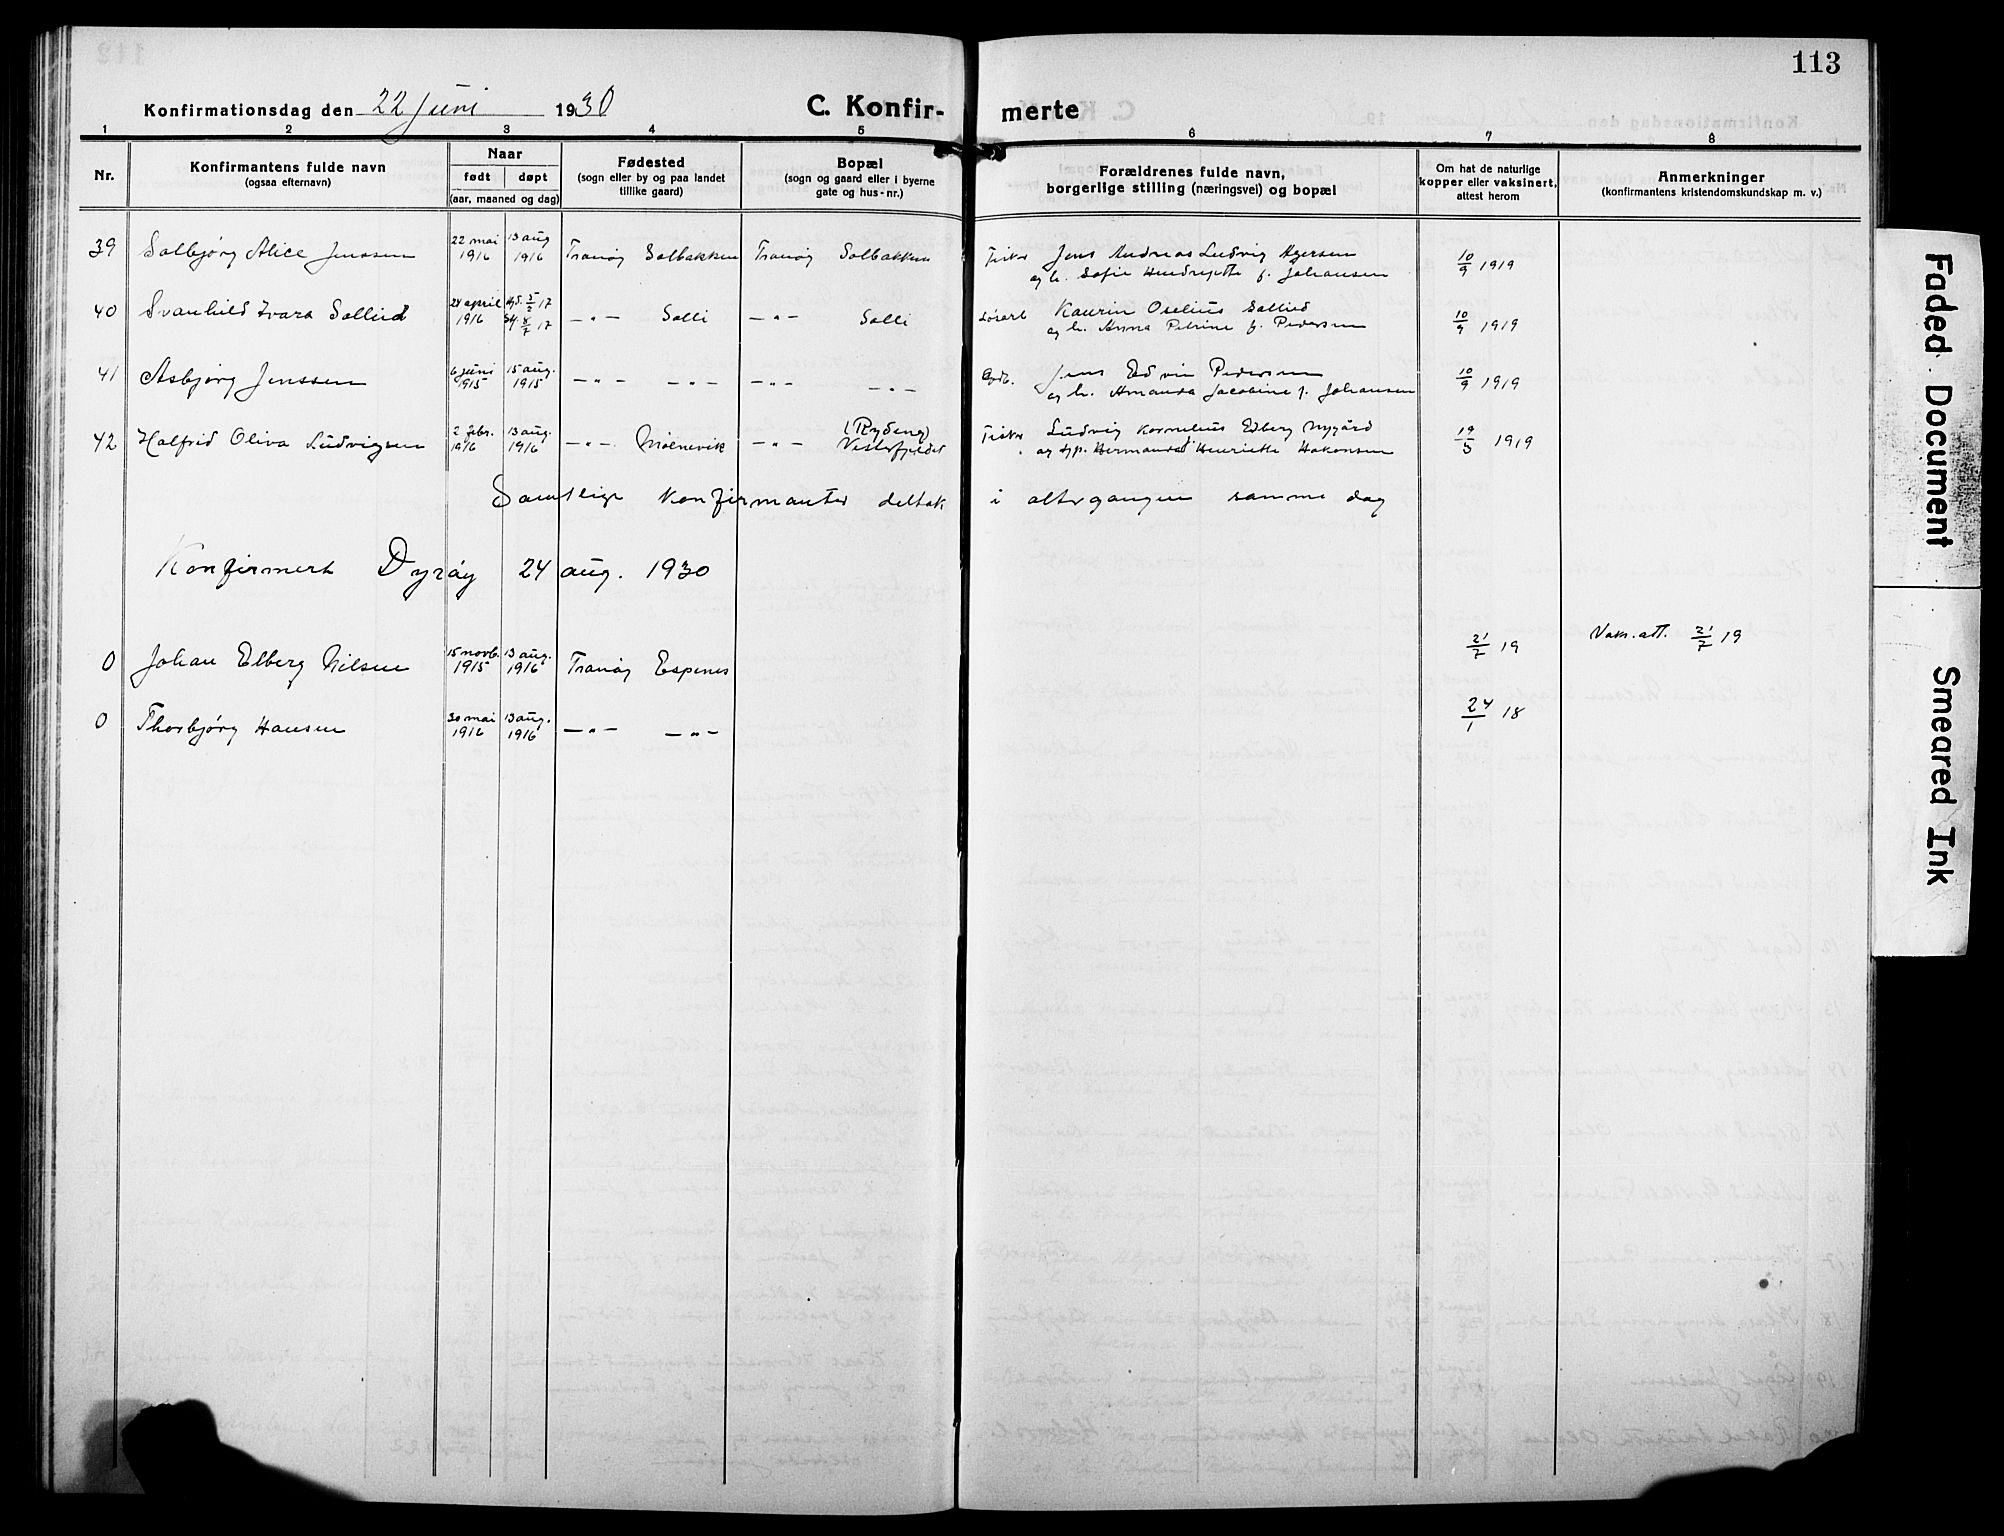 113
Konfirmationsdag den 22 juni 1930 C. Konfir- merte
1 2 3 4 5 6 7 8
Nr.
Konfirmantens fulde navn
(ogsaa efternavn)
Naar
født døpt
(aar, maaned og dag)
Fødested
(sogn eller by og paa landet
tillike gaard)
Bopæl
(sogn og gaard eller i byerne
gate og hus-nr.)
Forældrenes fulde navn,
borgerlige stilling (næringsvei) og bopæl
Om hat de naturlige
kopper eller vaksinert,
attest herom
Anmerkninger
(konfirmantens kristendomskundskap m. v.)
39 Solbjørg Alice Jenssen 22 mai 1916 13 aug 1916 Tranøy Solbakken Tranøy Solbakken Fisker Jens Andreas Ludvig
og h. Sofie f. Johansen 10/9 1919
40 Svanhild Ivara Sollied 24 april 1916 17 8/7 17 —"— Solli —"— Solli Kaurin Oselius Sollied
og h. Anna Petrine f. Pedersen 10/9 1919
41 Asbjørg Jenssen 6 juni 1915 15 aug. 1915 —"— —"— —"— —"— Jens Edvin Pedersen
og h. Amanda Jacobine f. Johansen 10/9 1919
42 Halfrid Oliva Ludvigsen 2 febr. 1916 13 aug. 1916 —"— Molnevik —"— (Rydeng)
Vesterfjeldet Fisker Ludvig Kornelius Edberg Nygård
og Henriette Hakonsen 19/5 1919
Samtlige konfirmanter deltok i altergangen samme dag
Konfirmert Dyrøy 24 aug. 1930
0 Johan Elberg Nilsen 15 novb. 1915 13 aug. 1916 Tranøy Espenes 21/7 19 Vaks. att. 21/7 19
0 Thorbjørg Hansen 30 mai 1916 13 aug. 1916 —"— —"— 24/1 18
Faded Document
Smeared Ink